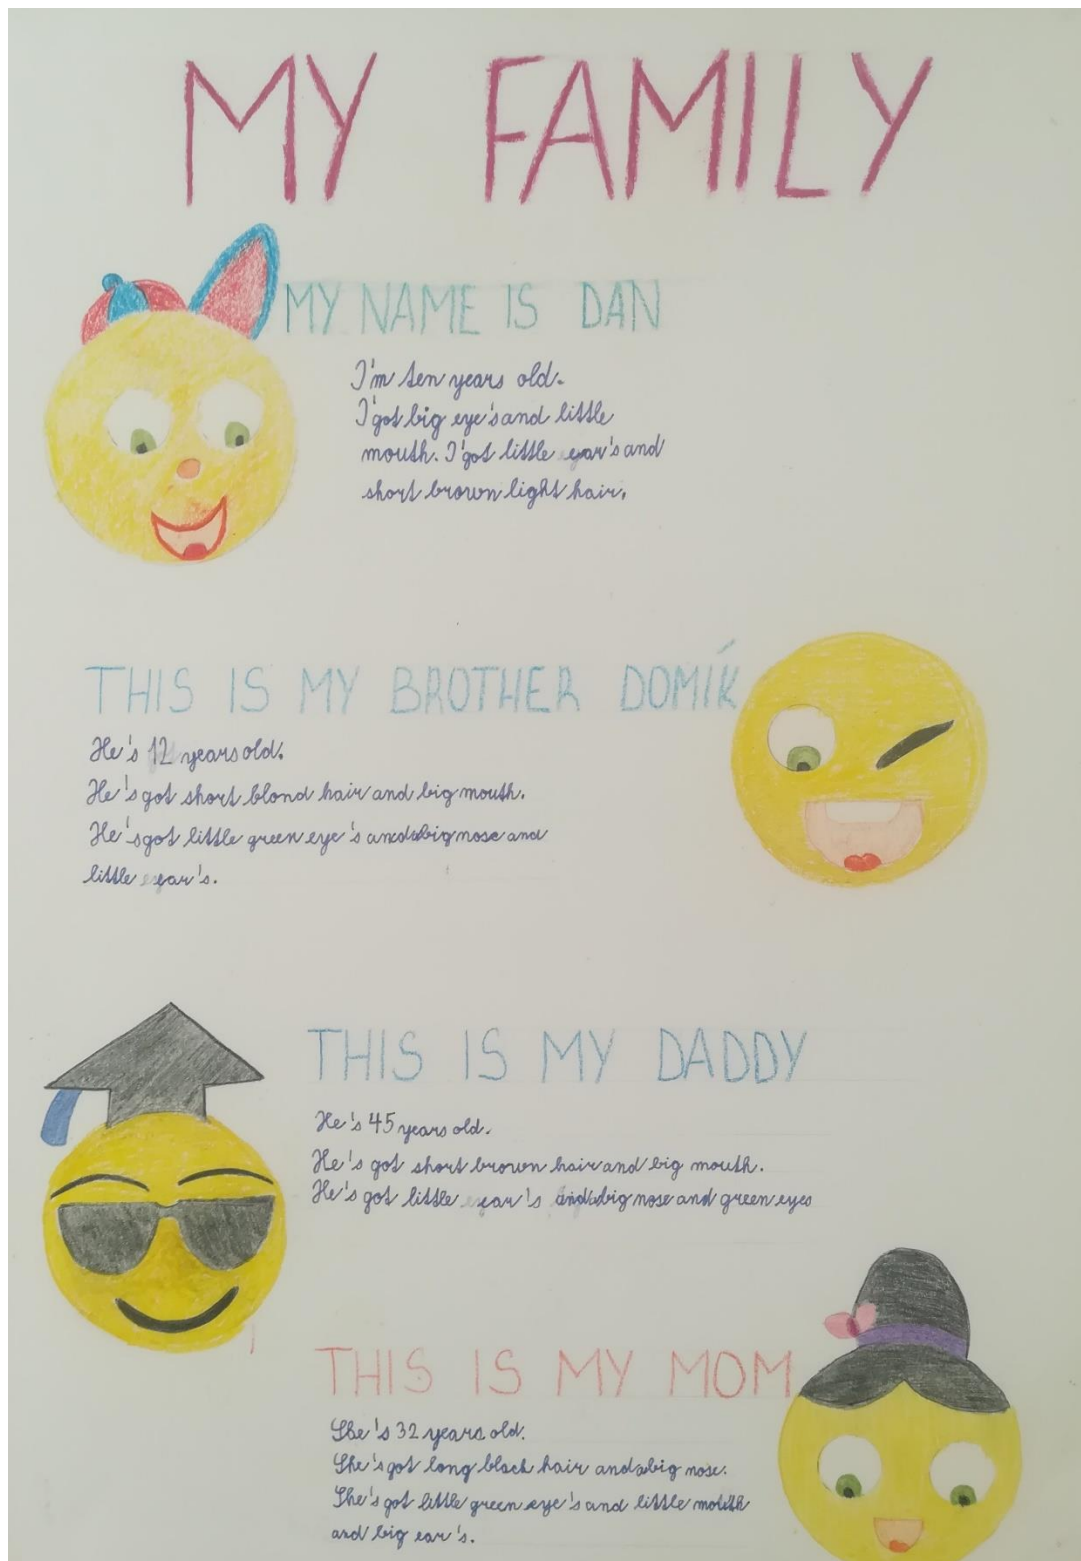 MY FAMILY
MY NAME IS DAN
I'm ten years old.
I'got big eye's and little
mouth. I'got little ear's and
short brown light hair.
THIS IS MY BROTHER DOMÍK
He's 12 years old.
He's got short blond hair and big mouth.
He's got little green eye's and big nose and
little ear's.
THIS IS MY DADDY
He's 45 years old.
He's got short brown hair and big mouth.
He's got little ear's and big nose and green eyes
THIS IS MY MOM
She's 32 years old.
She's got long black hair and a big nose.
She's got little green eye's and little mouth
and big ear's.